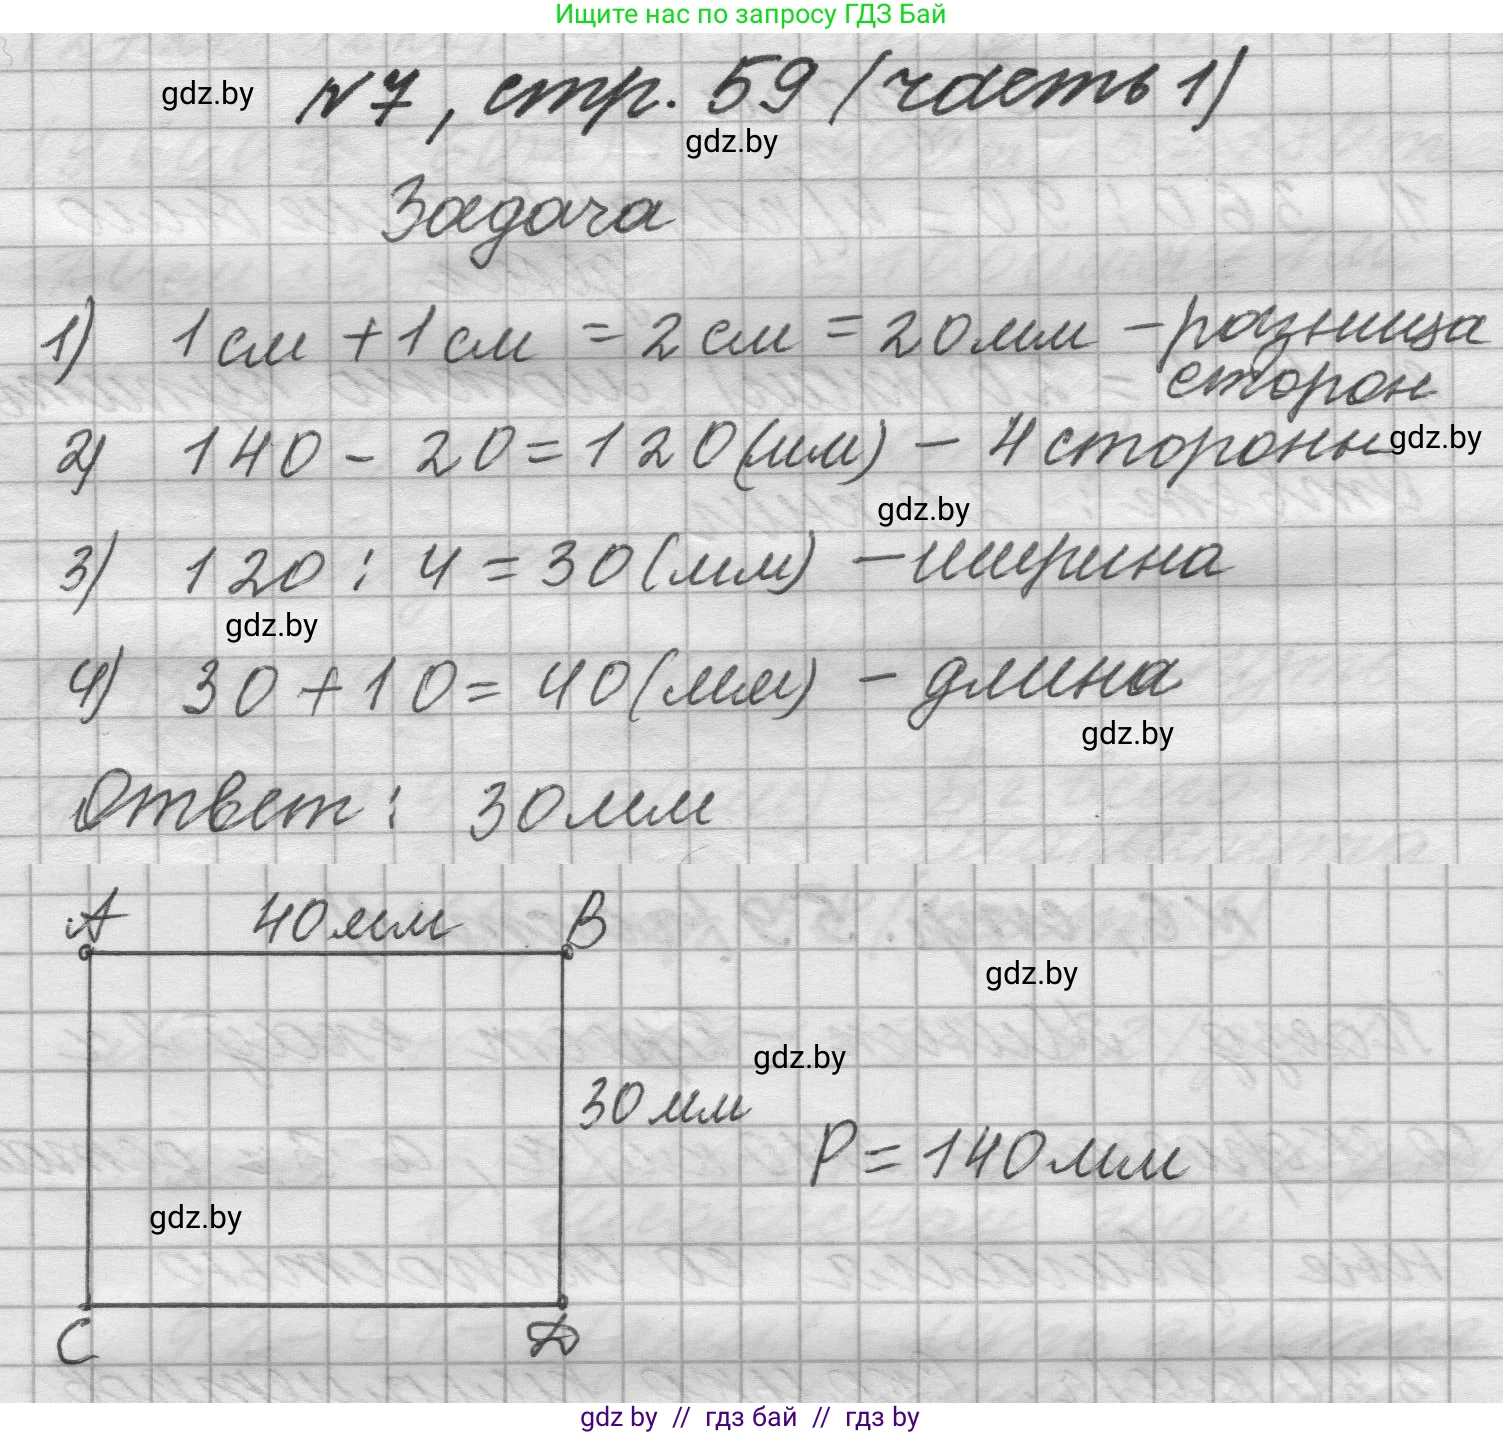 Ищите нас по запросу ГДЗ Бай
gdz.by
№7, стр. 59 (часть 1)
gdz.by
Задача
1) 1 см + 1 см = 2 см = 20 мм - разница
сторон
2) 140 - 20 = 120 (мм) - 4 стороны
gdz.by
gdz.by
3) 120 : 4 = 30 (мм) - ширина
gdz.by
4) 30 + 10 = 40 (мм) - длина
gdz.by
Ответ: 30 мм
A 40 мм B
gdz.by
gdz.by
30 мм
P = 140 мм
gdz.by
C D
gdz by // гдз бай // гдз by